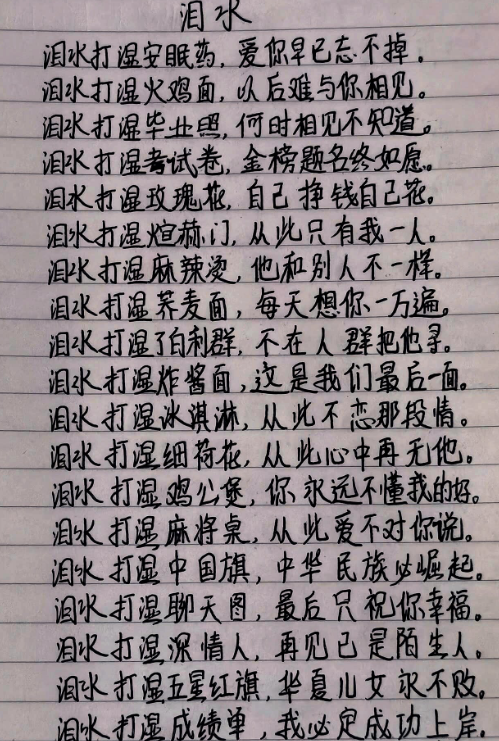 泪水
泪水打湿安眠药，爱你早已忘不掉。
泪水打湿火鸡面，以后难与你相见。
泪水打湿毕业照，何时相见不知道。
泪水打湿考试卷，金榜题名终如愿。
泪水打湿玫瑰花，自己挣钱自己花。
泪水打湿煊赫门，从此只有我一人。
泪水打湿麻辣烫，他和别人不一样。
泪水打湿荞麦面，每天想你一万遍。
泪水打湿了白利群，不在人群把他寻。
泪水打湿炸酱面，这是我们最后一面。
泪水打湿冰淇淋，从此不恋那段情。
泪水打湿细荷花，从此心中再无他。
泪水打湿鸡公堡，你永远不懂我的好。
泪水打湿麻将桌，从此爱不对你说。
泪水打湿中国旗，中华民族必崛起。
泪水打湿聊天图，最后只祝你幸福。
泪水打湿深情人，再见已是陌生人。
泪水打湿五星红旗，华夏儿女永不败。
泪水打湿成绩单，我必定成功上岸。